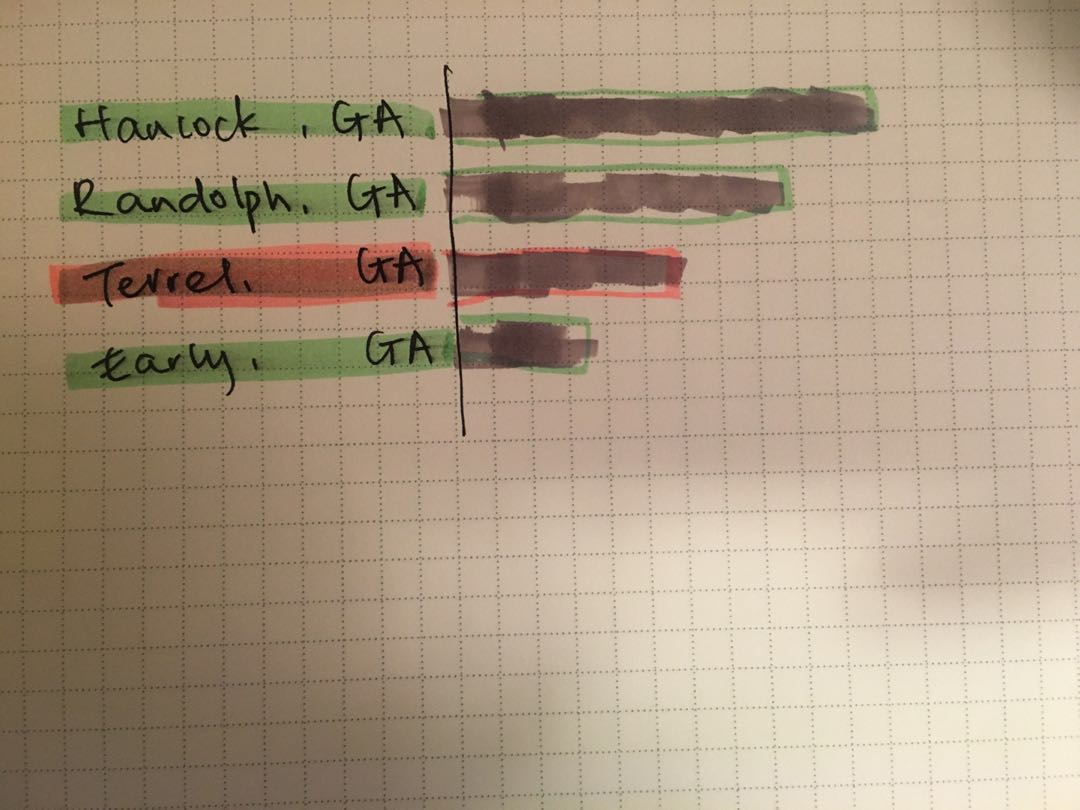 Hancock, GA
Randolph, GA
Terrel, GA
Early, GA